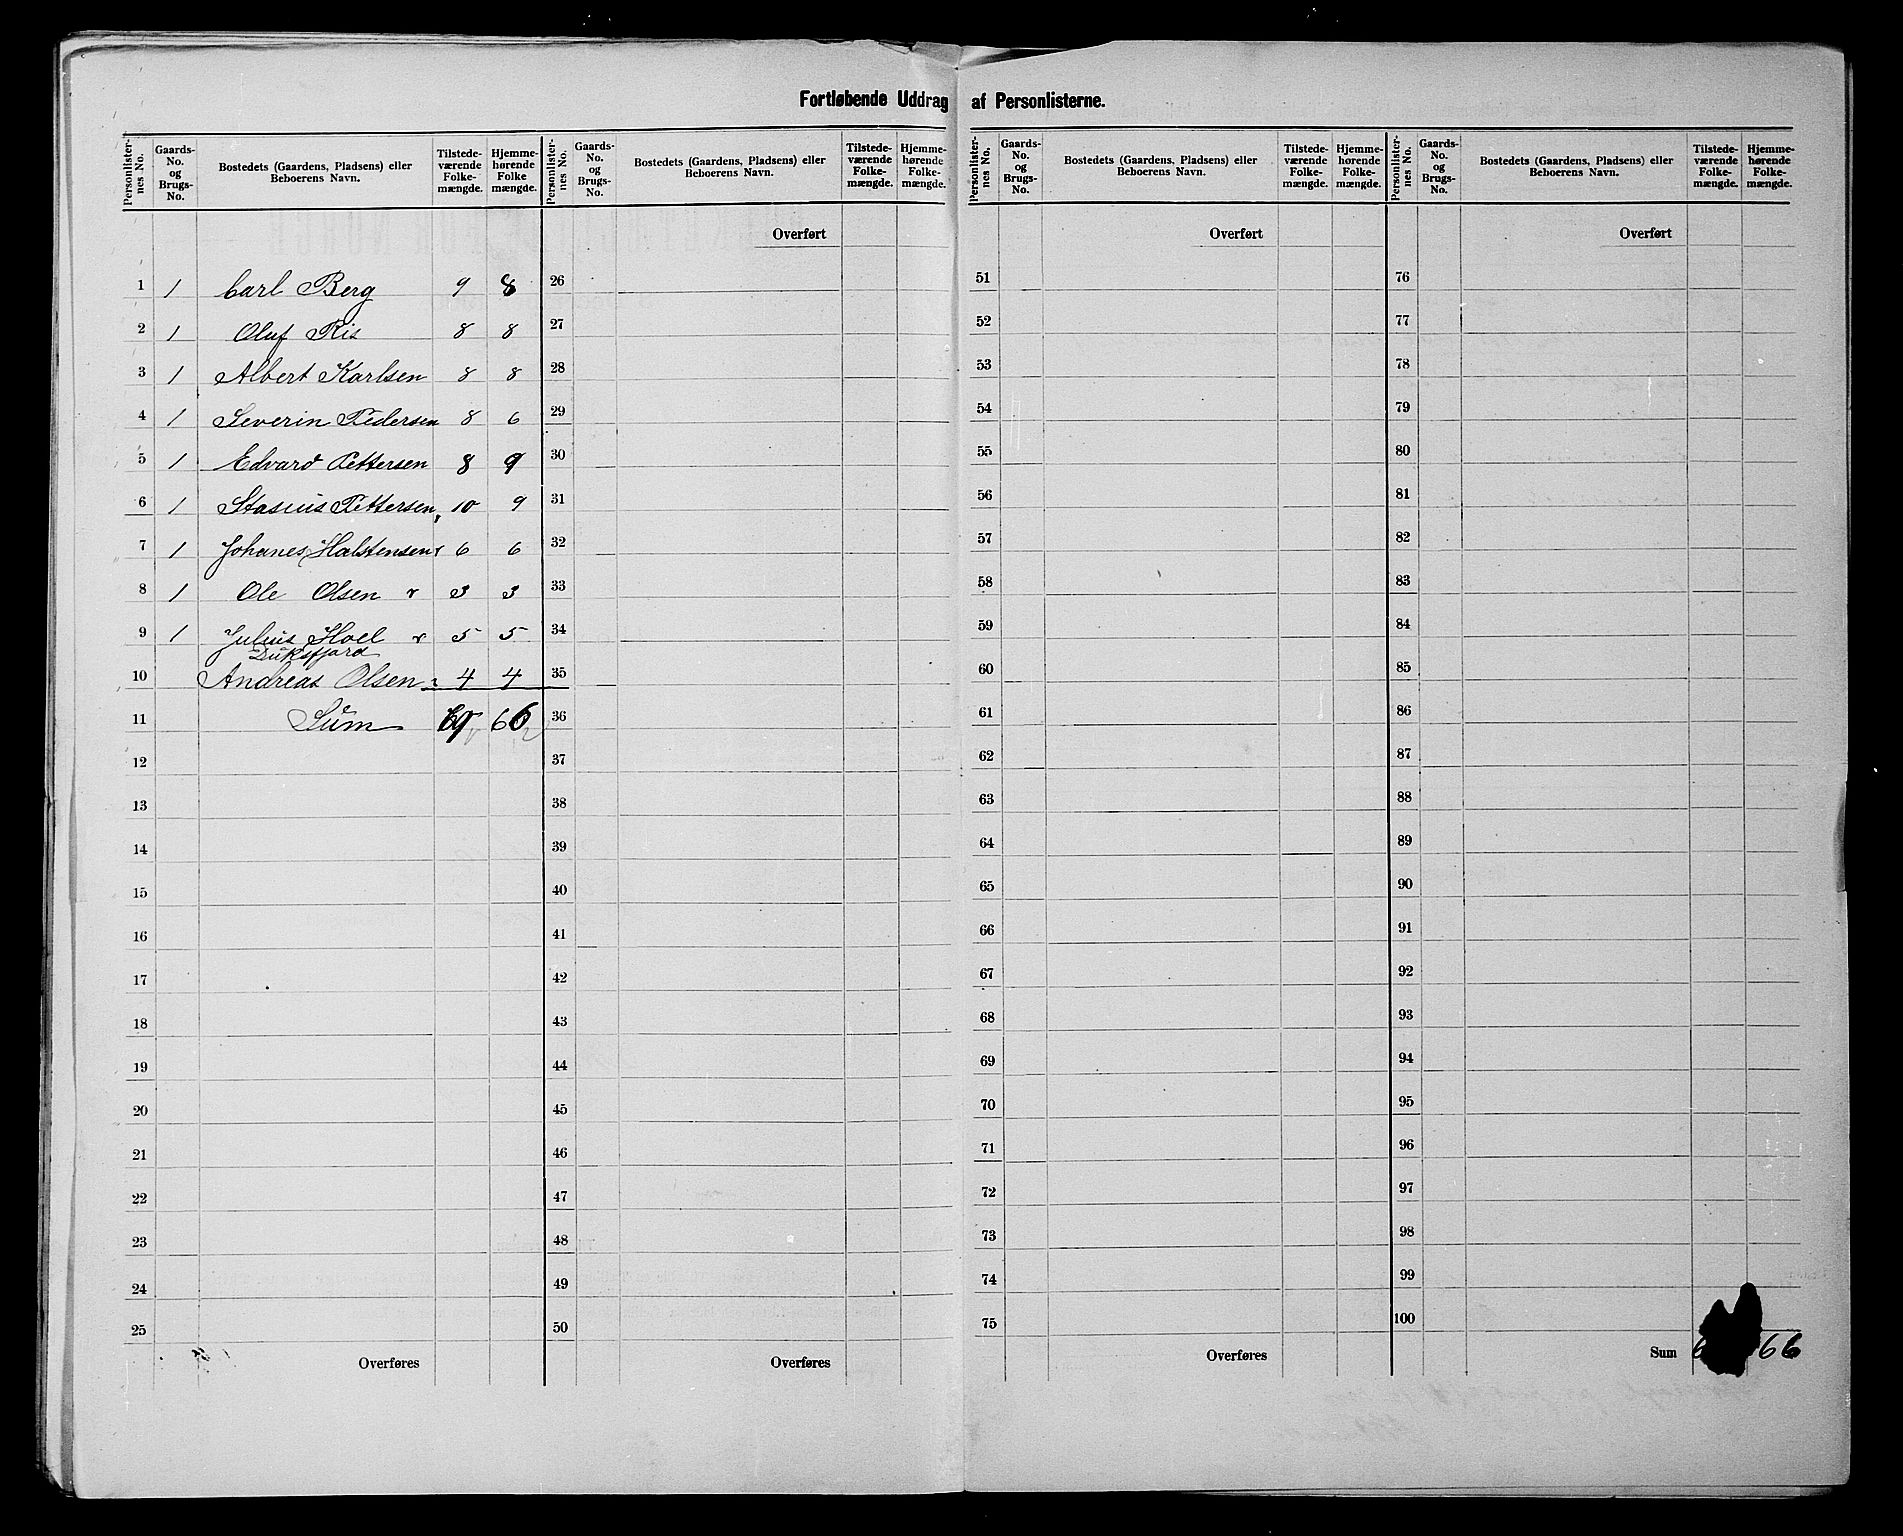 Fortløbende Uddrag af Personlisterne.
Personlister-nes No. Gaards-No. og Brugs-No. Bostedets (Gaardens, Pladsens) eller Beboerens Navn. Tilstede-værende Folke-mængde. Hjemme-hørende Folke mængde.
1 1 Carl Berg 9 8
2 1 Oluf Ris 8 8
3 1 Albert Karlsen 8 8
4 1 Severin Pedersen 8 6
5 1 Edvard Pettersen 8 9
6 1 Stasius Pettersen 10 9
7 1 Johanes Halstensen 6 6
8 1 Ole Olsen 3 3
9 1 Julius Hoel 5 5
Duksfjord
10 Andreas Olsen 4 4
11 Sum 69 66
12
13
14
15
16
17
18
19
20
21
22
23
24
25
Overføres
Personlister-nes No. Gaards-No. og Brugs-No. Bostedets (Gaardens, Pladsens) eller Beboerens Navn. Tilstede-værende Folke-mængde. Hjemme-hørende Folke-mængde.
Overført
26
27
28
29
30
31
32
33
34
35
36
37
38
39
40
41
42
43
44
45
46
47
48
49
50
Overføres
Personlister-nes No. Gaards-No. og Brugs-No. Bostedets (Gaardens, Pladsens) eller Beboerens Navn. Tilstede-værende Folke-mængde. Hjemme-hørende Folke-mængde.
Overført
51
52
53
54
55
56
57
58
59
60
61
62
63
64
65
66
67
68
69
70
71
72
73
74
75
Overføres
Personlister-nes No. Gaards-No. og Brugs-No. Bostedets (Gaardens, Pladsens) eller Beboerens Navn. Tilstede-værende Folke-mængde. Hjemme-hørende Folke-mængde.
Overført
76
77
78
79
80
81
82
83
84
85
86
87
88
89
90
91
92
93
94
95
96
97
98
99
100
Sum 66